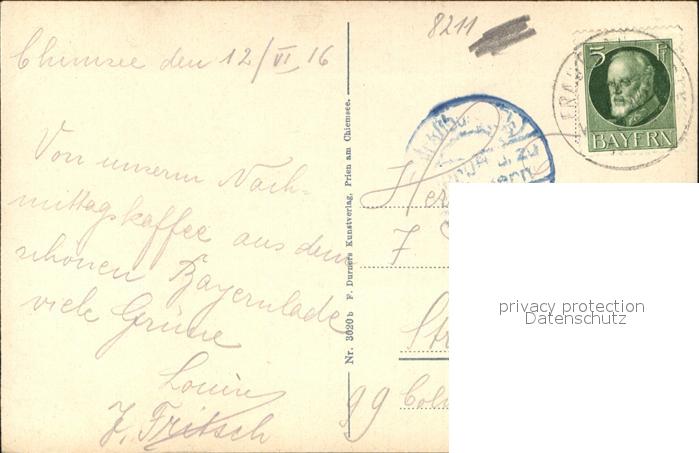 Chimsee den 12/VI 16
8211
5 Pf
BAYERN
Von unserm Nach-
mittagskaffee aus dem
schönen Bayernlade
viele Grüße
Louise
J. Fritsch
Nr. 3620 b F. Durners Kunstverlag, Prien am Chiemsee.
Her
7
Str
99
privacy protection
Datenschutz